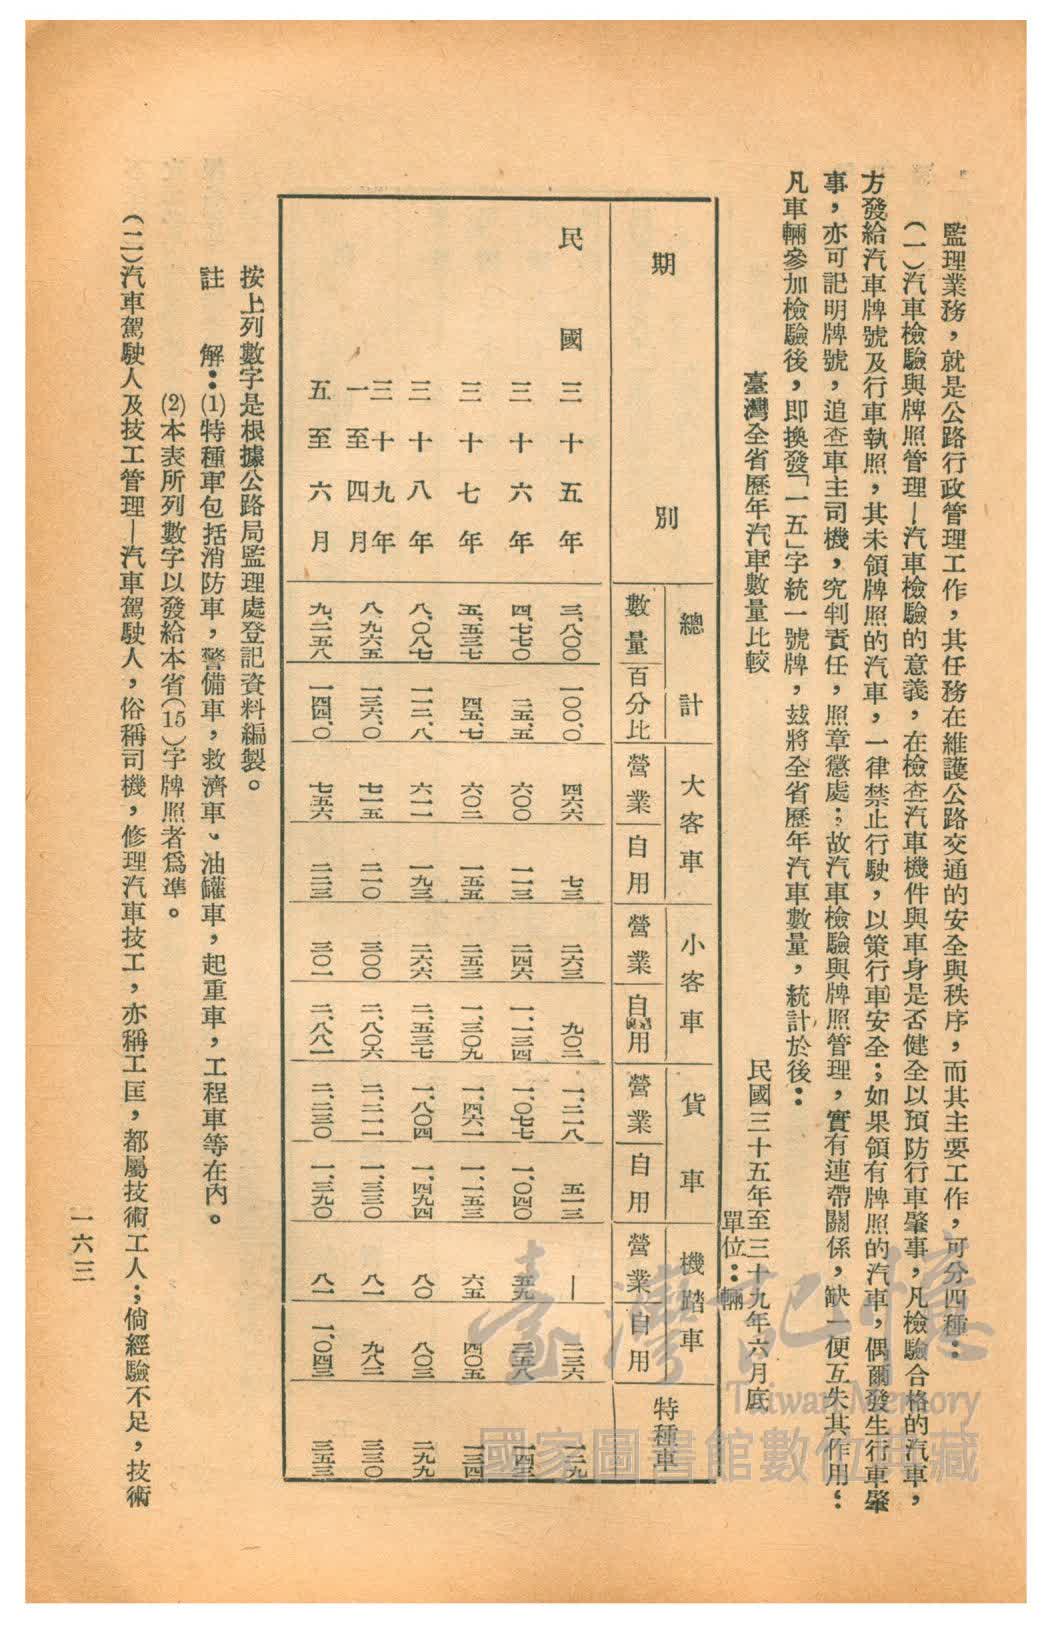 監理業務，就是公路行政管理工作，其任務在維護公路交通的安全與秩序，而其主要工作，可分四種：
（一）汽車檢驗與牌照管理—汽車檢驗的意義，在檢查汽車機件與車身是否健全以預防行車肇事，凡檢驗合格的汽車，
方發給汽車牌號及行車執照，其未領牌照的汽車，一律禁止行駛，以策行車安全；如果領有牌照的汽車，偶爾發生行車肇
事，亦可記明牌號，追查車主司機，究判責任，照章懲處；故汽車檢驗與牌照管理，實有連帶關係，缺一便互失其作用：
凡車輛參加檢驗後，即換發「一五」字統一號牌，玆將全省歷年汽車數量，統計於後：
臺灣全省歷年汽車數量比較
民國三十五年至三十九年六月底
單位：輛
期別 總計 大客車 小客車 貨車 機踏車 特種車
數量 百分比 營業 自用 營業 自用 營業 自用 營業 自用
民國三十五年 三、八〇〇 一〇〇、〇 四六六 七三 二六三 九〇二 一、二一八 五一三 — 二三六 一二九
三十六年 四、七七〇 一二五、五 六〇〇 一一三 二四六 一、一三四 一、〇七七 一、〇四〇 五九 三五八 一四三
三十七年 五、五三七 一四五、七 六〇二 一五五 二五三 一、三〇九 一、四六一 一、一五三 六五 四〇五 一三四
三十八年 八、〇八七 二一二、八 六一一 一九三 二六六 二、五三七 一、八〇四 一、四九四 八〇 八〇三 二九九
三十九年一至四月 八、九六五 二三六、〇 七一五 二一〇 三〇〇 二、八〇六 二、二一一 一、三三〇 八一 九八二 三三〇
五至六月 九、二五八 二四四、〇 七五六 二二三 三〇一 二、八八一 二、二三〇 一、三九〇 八一 一、〇四三 三五三
按上列數字是根據公路局監理處登記資料編製。
註　解：(1)特種車包括消防車，警備車，救濟車、油罐車，起重車，工程車等在內。
(2)本表所列數字以發給本省（15）字牌照者爲準。
（二）汽車駕駛人及技工管理—汽車駕駛人，俗稱司機，修理汽車技工，亦稱工匡，都屬技術工人；倘經驗不足，技術
一六三
臺灣記憶
Taiwan Memory
國家圖書館數位典藏